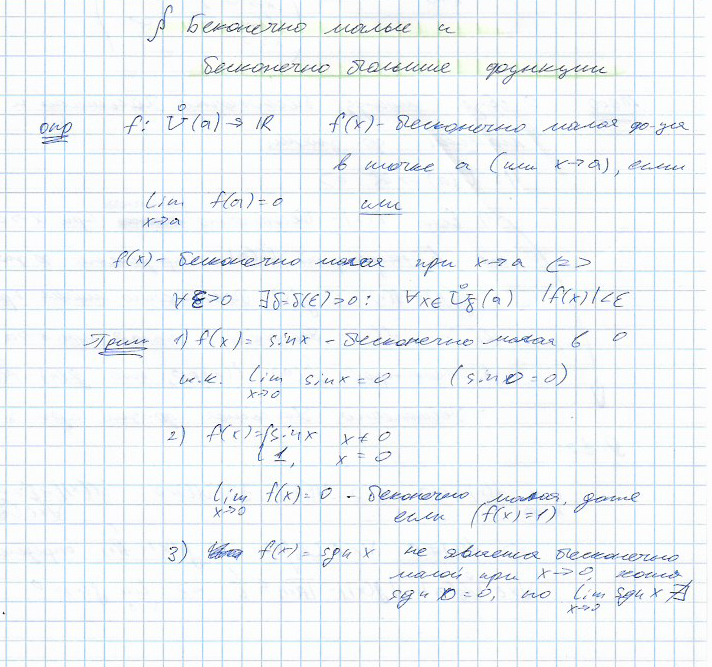 § Бесконечно малые и
бесконечно большие функции
опр f: Ů(a) → ℝ f(x) - бесконечно малая ф-ция
в точке a (или x→a), если
lim f(a) = 0 или
x→a
f(x) - бесконечно малая при x→a <=>
∀ε>0 ∃δ=δ(ε)>0: ∀x∈Ůδ(a) |f(x)|<ε
Прим 1) f(x) = sin x - бесконечно малая в 0
т.к. lim sin x = 0 (sin 0 = 0)
x→0
2) f(x) = { sin x x≠0
{ 1, x = 0
lim f(x) = 0 - бесконечно малая, даже
x→0 если (f(x)=1)
3) f(x) = sgn x не является бесконечно
малой при x→0, хотя
sgn 0 = 0, но lim sgn x ∄
x→0